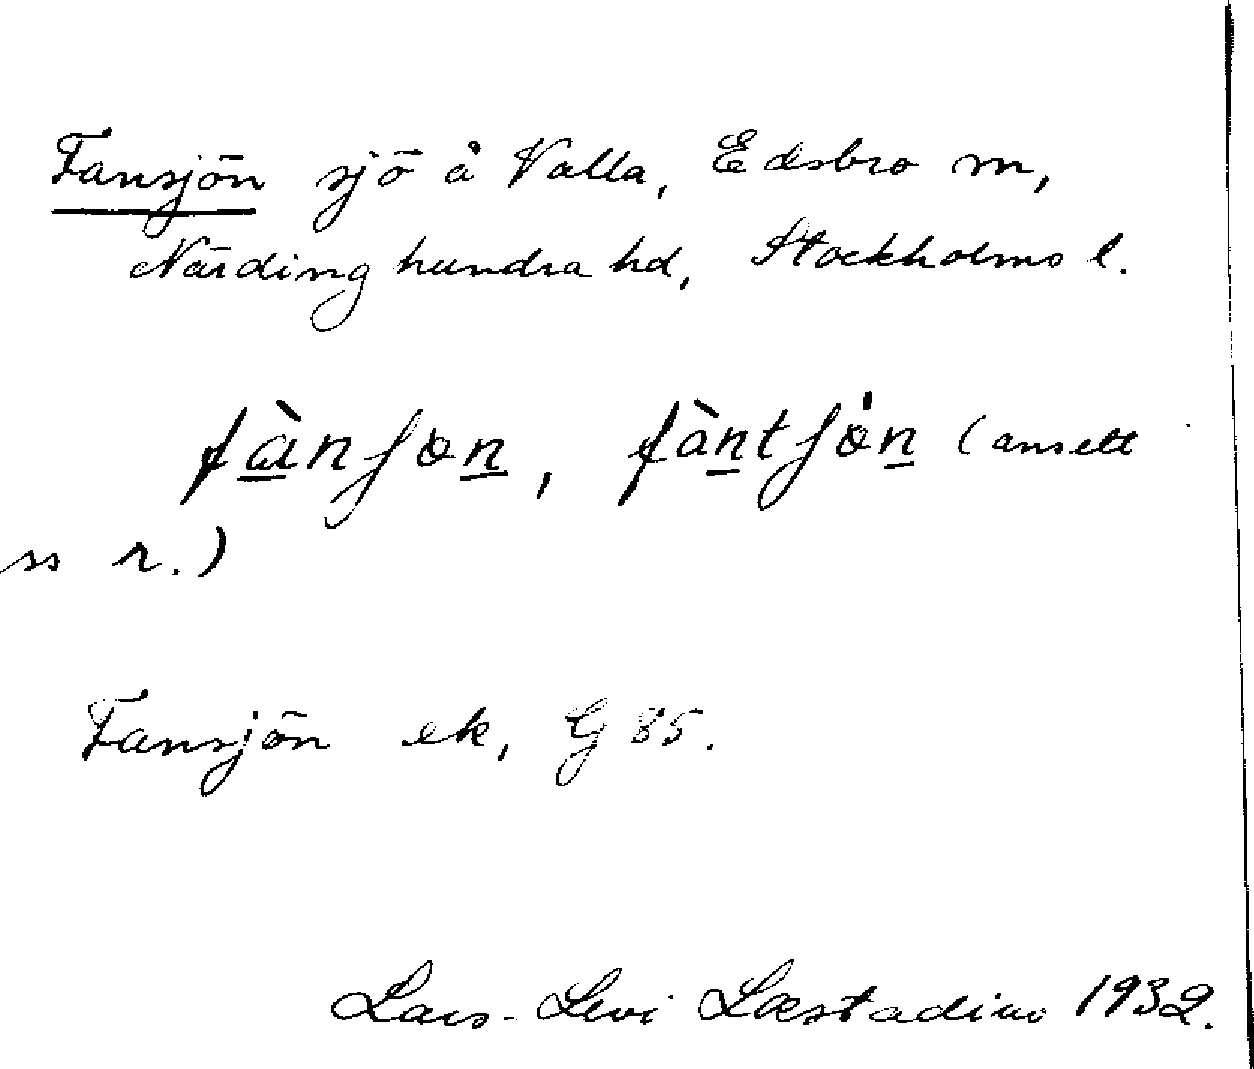 Fansjön sjö å Valla, Edsbro sn,
Närdinghundra hd, Stockholms l.
fànʃɵn, fàntʃɵ̀n (ansett
ss r.)
Fansjön ek, G 85.
Lars-Levi Læstadius 1932.